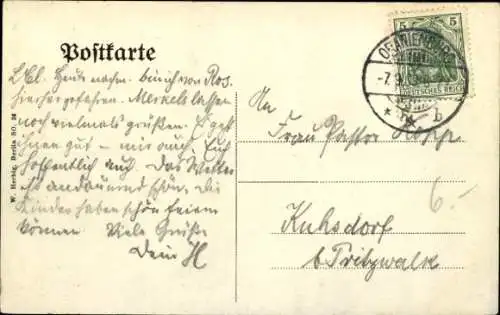 Postkarte
L. Cl. Heute nachm. bin ich von Ros.
hierher gefahren. Merkels lassen
noch vielmals grüßen. Es geht
ihnen gut – mir auch. Euch
hoffentlich auch. Das Wetter
ist andauernd schön, die
Kinder haben schön feiern
können. Viele Grüße
Dein H
W. Herbig, Berlin SO. 26
5 5
DEUTSCHES REICH
ORANIENBURG
-7.9.
* b
An
Frau Pastor
Kuhsdorf
b Pritzwalk
6.-